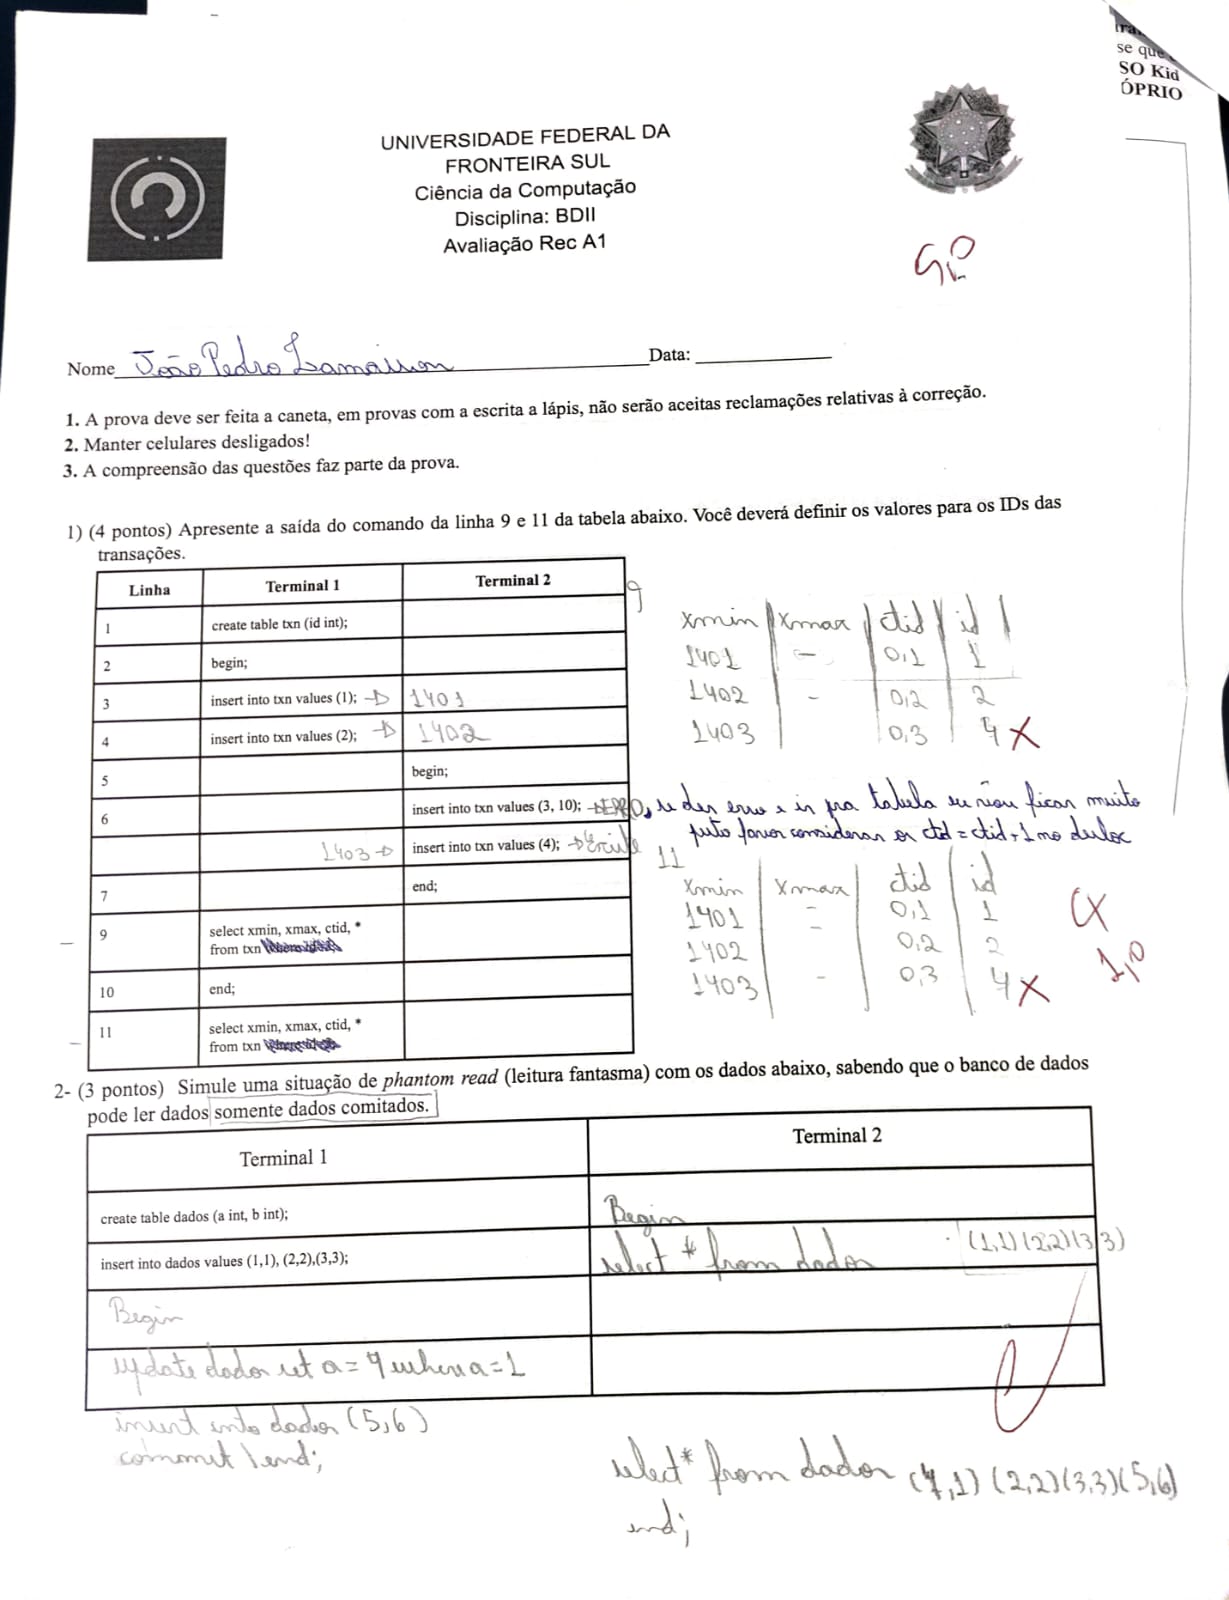 se que
SO Kid
ÓPRIO
UNIVERSIDADE FEDERAL DA
FRONTEIRA SUL
Ciência da Computação
Disciplina: BDII
Avaliação Rec A1
Nome João Pedro Lamaison Data:
1. A prova deve ser feita a caneta, em provas com a escrita a lápis, não serão aceitas reclamações relativas à correção.
2. Manter celulares desligados!
3. A compreensão das questões faz parte da prova.
1) (4 pontos) Apresente a saída do comando da linha 9 e 11 da tabela abaixo. Você deverá definir os valores para os IDs das
transações.
Linha Terminal 1 Terminal 2
1 create table txn (id int);
2 begin;
3 insert into txn values (1); → 1401
4 insert into txn values (2); → 1402
5 begin;
6 insert into txn values (3, 10); → ERRO, se der erro e ir pra tabela eu vou ficar muito
puto favor considerar os ctid = ctid + 1 no
1403 → insert into txn values (4); →
7 end;
9 select xmin, xmax, ctid, *
from txn
10 end;
11 select xmin, xmax, ctid, *
from txn
9
xmin xmax ctid id
1401 - 0,1 1
1402 - 0,2 2
1403 0,3 4 X
11
xmin xmax ctid id
1401 - 0,1 1
1402 0,2 2
1403 - 0,3 4 X
1,0
2- (3 pontos) Simule uma situação de phantom read (leitura fantasma) com os dados abaixo, sabendo que o banco de dados
pode ler dados somente dados comitados.
Terminal 1 Terminal 2
create table dados (a int, b int); Begin
insert into dados values (1,1), (2,2),(3,3); select * from dados (1,1) (2,2) (3,3)
Begin
update dados set a = 4 where a = 1
insert into dados (5,6)
commit \ end;
select * from dados (4,1) (2,2) (3,3) (5,6)
end;